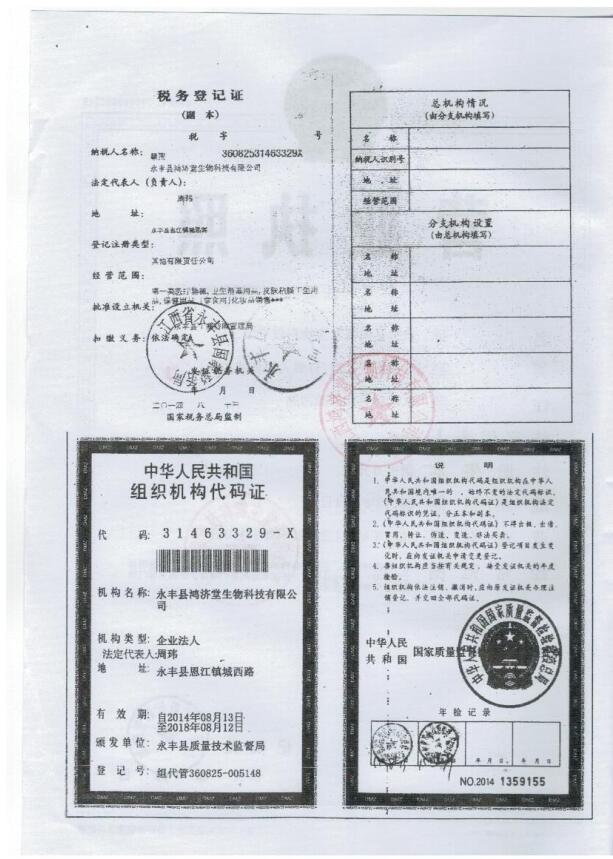 税务登记证
(副 本)
税 字 号
纳税人名称: 36082531463329X
永丰县鸿济堂生物科技有限公司
法定代表人(负责人):
周玮
地 址:
永丰县恩江镇城西路
登记注册类型:
其他有限责任公司
经营范围:
批准设立机关:
扣缴义务:依法确定
发证税务机关
年 月 日
二〇一四 八 十三
国家税务总局监制
总机构情况
(由分支机构填写)
名 称
纳税人识别号
地 址
经营范围
分支机构设置
(由总机构填写)
名 称
地 址
名 称
地 址
名 称
地 址
名 称
地 址
名 称
地 址
中华人民共和国
组织机构代码证
代 码:31463329-X
机构名称:永丰县鸿济堂生物科技有限公
司
机构类型:企业法人
法定代表人:周玮
地 址:永丰县恩江镇城西路
有 效 期:自2014年08月13日
至2018年08月12日
颁发单位:永丰县质量技术监督局
登 记 号:组代管360825-005148
说 明
1.中华人民共和国组织机构代码是组织机构在中华人
民共和国境内唯一的、始终不变的法定代码标识,
《中华人民共和国组织机构代码证》是组织机构法定
代码标识的凭证,分正本和副本。
2.《中华人民共和国组织机构代码证》不得出租、出借、
冒用、转让、伪造、变造、非法买卖。
3.《中华人民共和国组织机构代码证》登记项目发生变
化时,应向发证机关申请变更登记。
4.各组织机构应当按有关规定,接受发证机关的年度
检验。
5.组织机构依法注销、撤消时,应向原发证机关办理注
销登记,并交回全部代码证。
中华人民
共 和 国
国家质量监督
年检记录
年 月 日
年 月 日
NO.2014 1359155